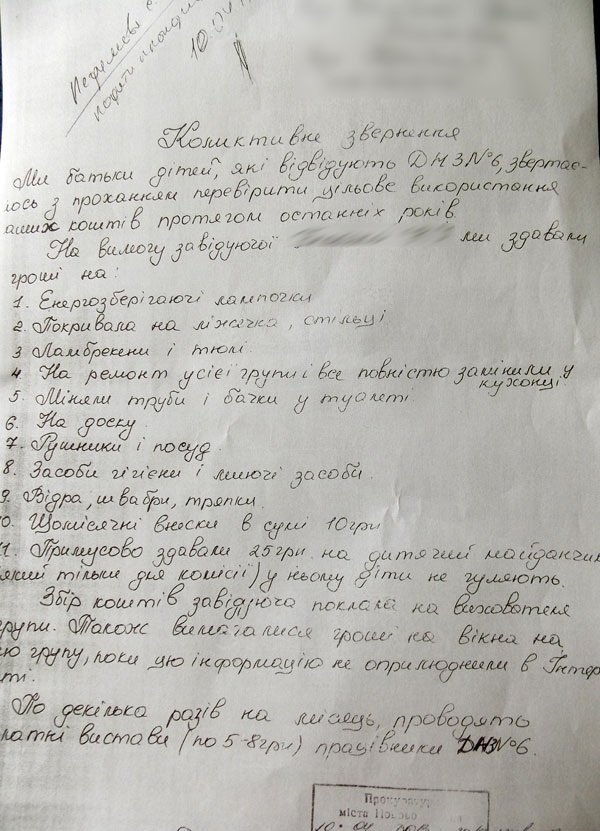 10.04
Колективне звернення
Ми батьки дітей, які відвідують ДНЗ №6, звертає-
мось з проханням перевірити цільове використання
наших коштів протягом останніх років.
На вимогу завідуючої ми здавали
гроші на:
1. Енергозберігаючі лампочки
2. Покривала на ліжечка, стільці.
3 Ламбрекени і тюлі.
4. На ремонт усієї групи і все повністю замінили у
кухонці
5. Міняли труби і бачки у туалеті.
6. На доску.
7. Рушники і посуд.
8. Засоби гігієни і миючі засоби.
9. Відра, швабри, тряпки.
10. Щомісячні внески в сумі 10грн
11. Примусово здавали 25грн. на дитячий майданчик
який тільки для комісії) у ньому діти не гуляють.
Збір коштів завідуюча поклала на вихователя
групи. Також вимагалися гроші на вікна на
ю групу, поки цю інформацію не оприлюднили в Інтер
ті.
По декілька разів на місяць, проводять
платні вистави (по 5-8грн) працівники ДНЗ №6.
Прокурату
міста
10.04